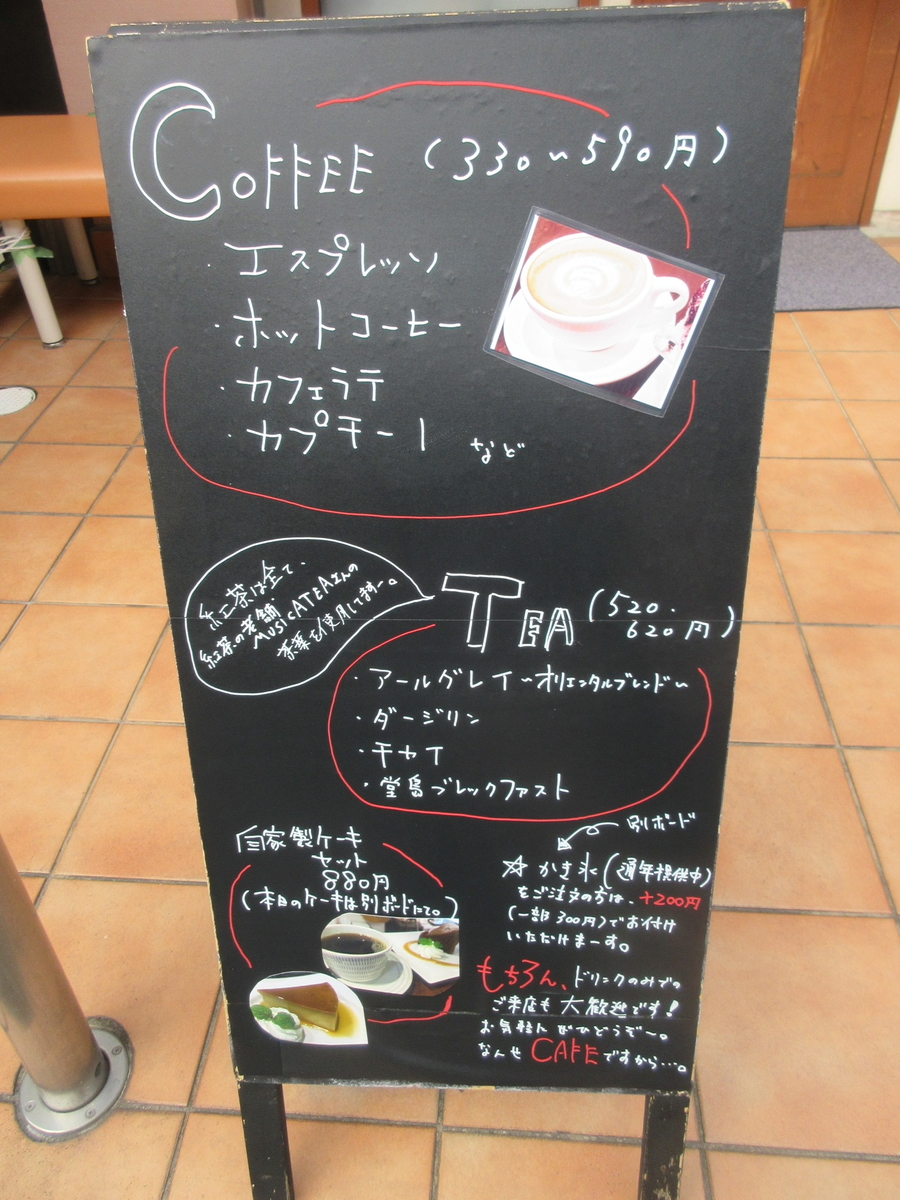 COFFEE (330〜590円)
・エスプレッソ
・ホットコーヒー
・カフェラテ
・カプチーノ など
紅茶は全て、
紅茶の老舗
MUSICATEAさんの
茶葉を使用してますー。
TEA (520.
620円)
・アールグレイ〜オリエンタルブレンド〜
・ダージリン
・チャイ
・堂島ブレックファスト
自家製ケーキ
セット
880円
(本日のケーキは別ボードにて。)
別ボード
☆かき氷(通年提供中)
をご注文の方は、+200円
(一部300円)でお付け
いただけまーす。
もちろん、ドリンクのみでの
ご来店も大歓迎です!
お気軽にぜひどうぞ〜。
なんせCAFEですから…。